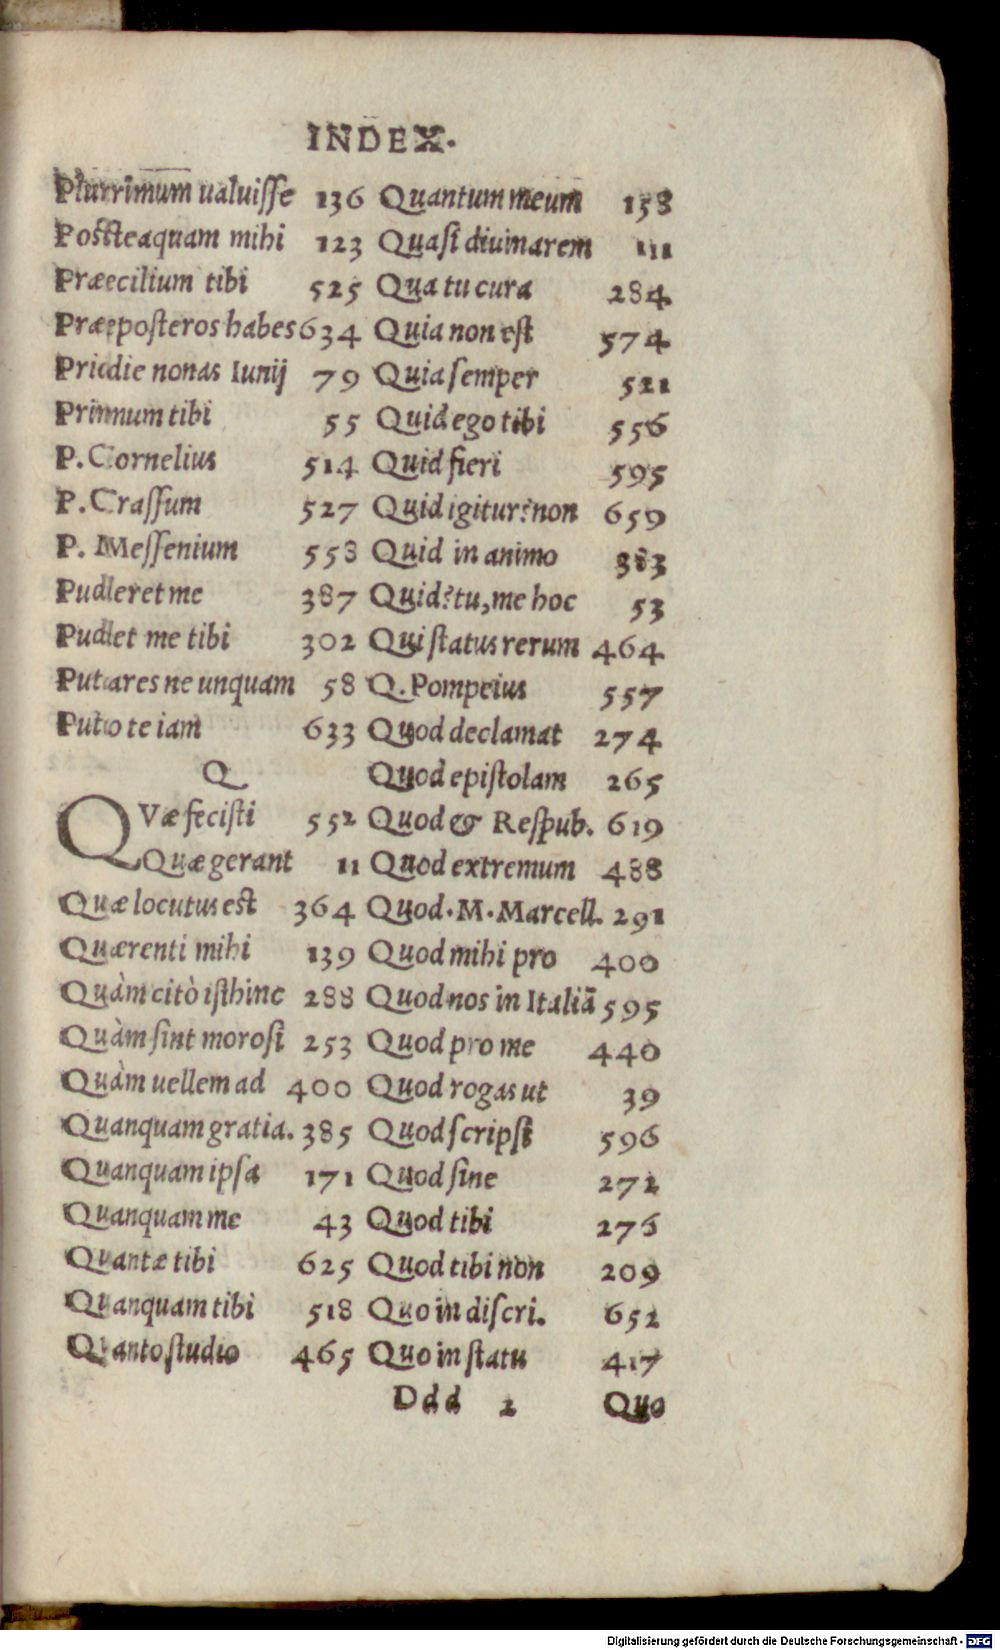 INDEX.
Plurrimum ualuisse 136
Posteaquam mihi 123
Præcilium tibi 525
Præposteros habes 634
Pridie nonas Iunij 79
Primum tibi 55
P. Cornelius 514
P. Crassum 527
P. Messenium 558
Puderet me 387
Pudet me tibi 302
Putares ne unquam 58
Puto te iam 633
Q
QVæ fecisti 552
Quæ gerant 11
Quæ locutus est 364
Quærenti mihi 139
Quàm citò isthinc 288
Quàm sint morosi 253
Quàm uellem ad 400
Quanquam gratia. 385
Quanquam ipsa 171
Quanquam me 43
Quantæ tibi 625
Quanquam tibi 518
Quanto studio 465
Quantum meum 158
Quasi diuinarem 111
Qua tu cura 284
Quia non est 574
Quia semper 521
Quid ego tibi 556
Quid fieri 595
Quid igitur? non 659
Quid in animo 383
Quid? tu, me hoc 53
Qui status rerum 464
Q. Pompeius 557
Quod declamat 274
Quod epistolam 265
Quod & Respub. 619
Quod extremum 488
Quod. M. Marcell. 291
Quod mihi pro 400
Quod nos in Italiā 595
Quod pro me 440
Quod rogas ut 39
Quod scripsi 596
Quod sine 272
Quod tibi 276
Quod tibi non 209
Quo in discri. 652
Quo in statu 417
Ddd 2 Quo
Digitalisierung gefördert durch die Deutsche Forschungsgemeinschaft - DFG